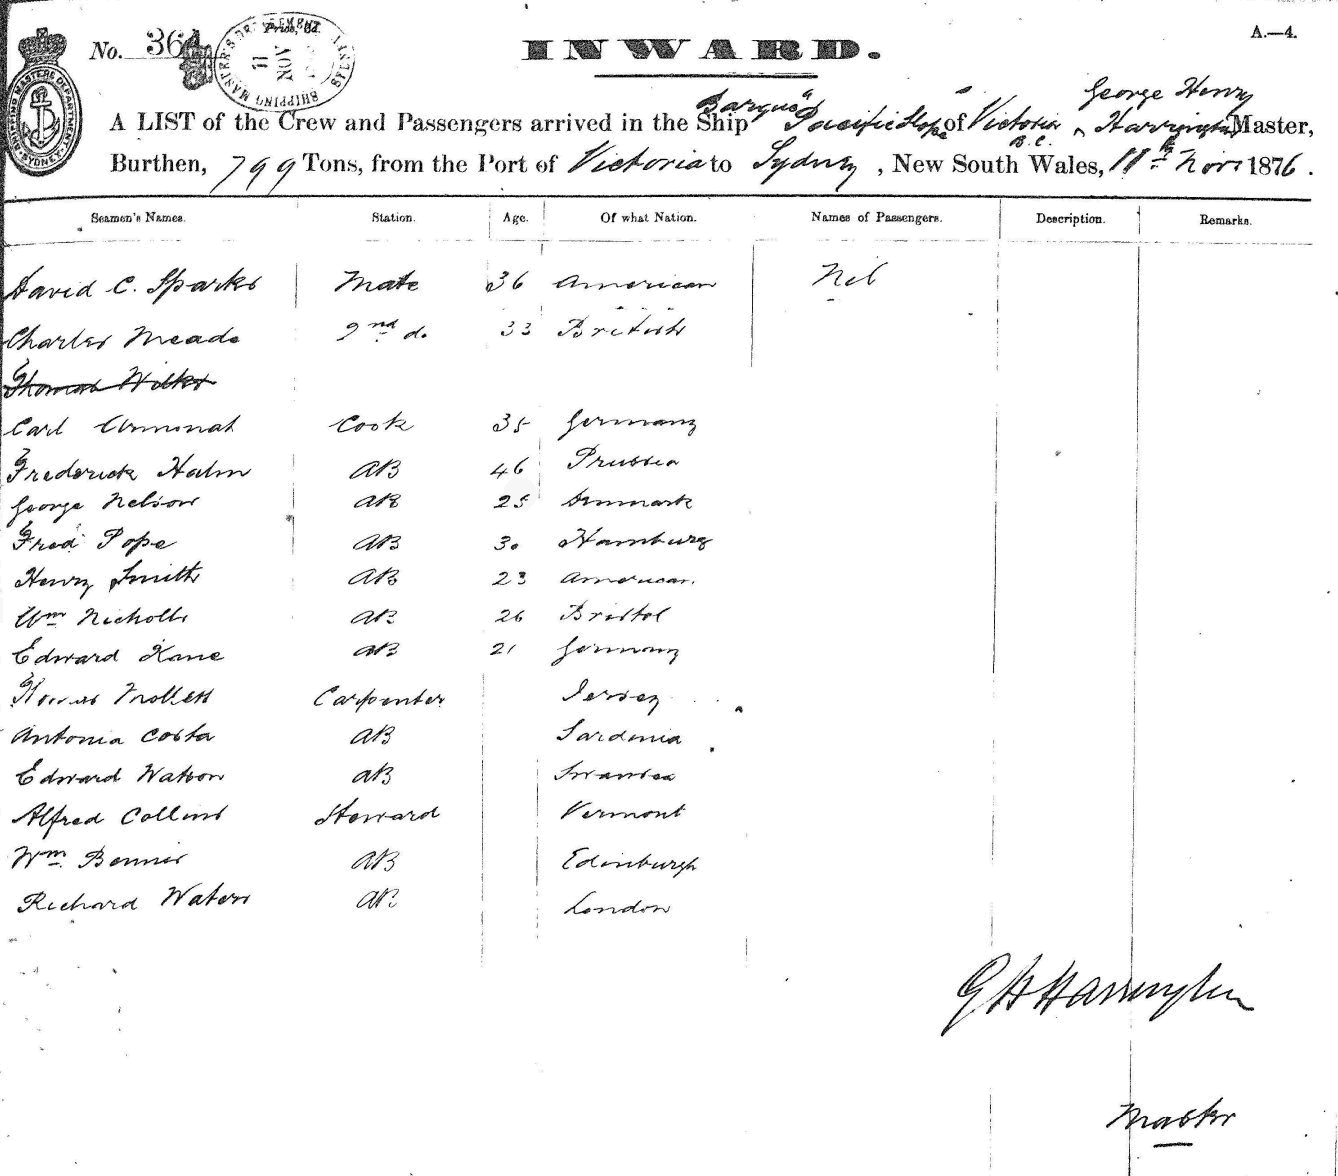 A.—4.
No. 364
Price, 6d.
SHIPPING MASTER'S DEPARTMENT
11 NOV
SYDNEY
SHIPPING MASTERS DEPARTMENT.
SYDNEY
INWARD.
George Henry
A LIST of the Crew and Passengers arrived in the Ship Barque "Pacific Slope" of Victoria B.C. Harrington Master,
Burthen, 799 Tons, from the Port of Victoria to Sydney, New South Wales, 11th Novr 1876.
Seamen's Names. Station. Age. Of what Nation. Names of Passengers. Description. Remarks.
David C. Sparks Mate 36 American Nil
Charles Meade 2nd do. 33 British
Thomas Wilks
Carl Cook 35 Germany
Frederick Halm AB 46 Prussia
George Nelson AB 25 Denmark
Fred Pope AB 30 Hamburg
Henry Smith AB 23 American.
Wm Nicholls AB 26 Bristol
Edward Kane AB 21 Germany
Mollett Carpenter Jersey
Antonia Costa AB Sardinia
Edward Watson AB Swansea
Alfred Collins Steward Vermont
Wm Bennis AB Edinburgh
Richard Waters AB London
G H Harrington
Master